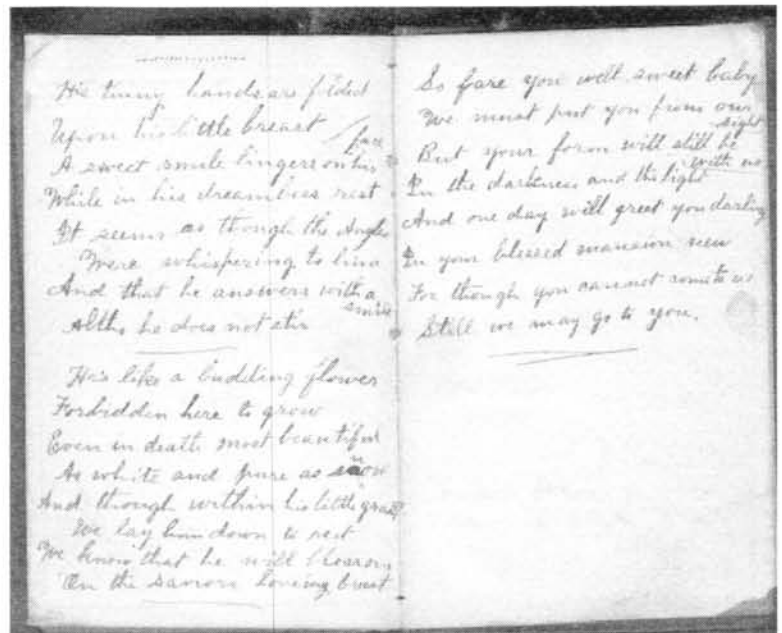 His tinny hands are folded
Upon his little breast
A sweet smile lingers on his face
While in his dreamless rest
It seems as though the Angles
Were whispering to him
And that he answers with a smile
Altho he does not stir
He's like a budding flower
Forbidden here to grow
Even in death most beautiful
As white and pure as snow
And though within his little grave
We lay him down to rest
We know that he will blossom
On the saviors loveing breast
So fare you well sweet baby
We must put you from our sight
But your form will still be with us
In the darkness and the light
And one day will greet you darling
In your blessed mansion new
For though you cannot come to us
Still we may go to you.